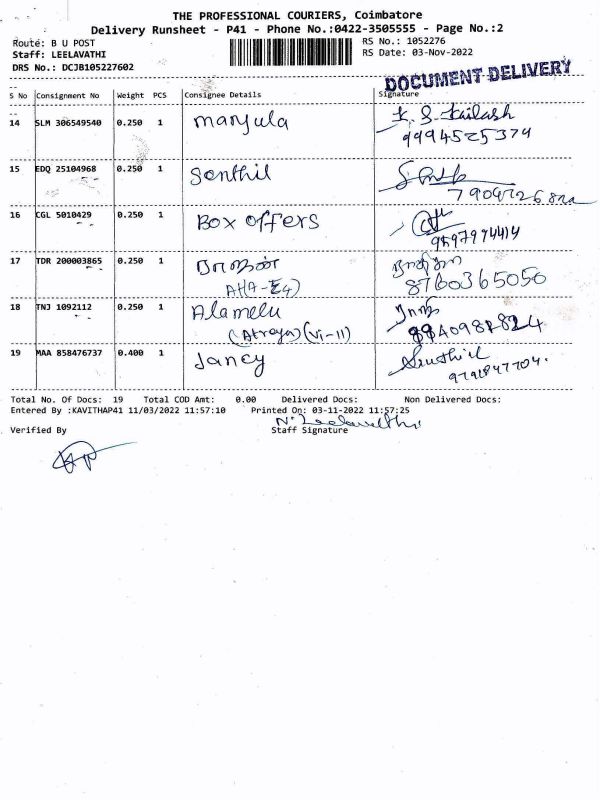 THE PROFESSIONAL COURIERS, Coimbatore
Delivery Runsheet - P41 - Phone No.:0422-3505555 - Page No.:2
Route: B U POST
RS No.: 1052276
Staff: LEELAVATHI
RS Date: 03-Nov-2022
DRS No.: DCJB105227602
DOCUMENT DELIVERY
S No Consignment No Weight PCS Consignee Details Signature
14 SLM 306549540 0.250 1 Manjula K. S. Kailash
9994525374
15 EDQ 25104968 0.250 1 Senthil
16 CGL 5010429 0.250 1 Box offers
9597974414
17 TDR 200003865 0.250 1 ராஜன்
A(A-E4) 8760365050
18 TNJ 1092112 0.250 1 Alamelu
(Atreya)(Vi-11)
19 MAA 858476737 0.400 1 Jancy Senthil
9791847704.
Total No. Of Docs: 19 Total COD Amt: 0.00 Delivered Docs: Non Delivered Docs:
Entered By :KAVITHAP41 11/03/2022 11:57:10 Printed On: 03-11-2022 11:57:25
N. Leelavathi
Verified By Staff Signature